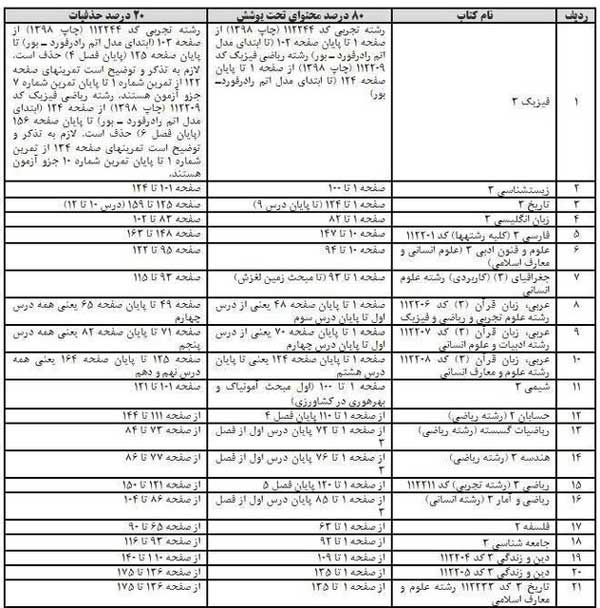 ردیف نام کتاب ۸۰ درصد محتوای تحت پوشش ۲۰ درصد حذفیات
۱ فیزیک ۳
رشته تجربی کد ۱۱۲۲۴۴ (چاپ ۱۳۹۸) از
صفحه ۱ تا پایان صفحه ۱۰۲ (تا ابتدای مدل
اتم رادرفورد ــ بور) رشته ریاضی فیزیک کد
۱۱۲۲۰۹ (چاپ ۱۳۹۸) از صفحه ۱ تا پایان
صفحه ۱۲۴ (تا ابتدای مدل اتم رادرفوردــ
بور)
رشته تجربی کد ۱۱۲۲۴۴ (چاپ ۱۳۹۸) از
صفحه ۱۰۳ (ابتدای مدل اتم رادرفورد ــ بور) تا
پایان صفحه ۱۲۵ (پایان فصل ۴) حذف است.
لازم به تذکر و توضیح است تمرینهای صفحه
۱۲۲ از تمرین شماره ۱ تا پایان تمرین شماره ۷
جزو آزمون هستند. رشته ریاضی فیزیک کد
۱۱۲۲۰۹ (چاپ ۱۳۹۸) از صفحه ۱۲۴ (ابتدای
مدل اتم رادرفورد ــ بور) تا پایان صفحه ۱۵۶
(پایان فصل ۶) حذف است. لازم به تذکر و
توضیح است تمرینهای صفحه ۱۳۴ از تمرین
شماره ۱ تا پایان تمرین شماره ۱۰ جزو آزمون
هستند.
۲ زیستشناسی ۳ صفحه ۱ تا ۱۰۰ صفحه ۱۰۱ تا ۱۲۴
۳ تاریخ ۳ صفحه ۱ تا ۱۲۴ (تا پایان درس ۹) صفحه ۱۲۵ تا ۱۵۹ (درس ۱۰ تا ۱۲)
۴ زبان انگلیسی ۳ صفحه ۱ تا ۸۲ صفحه ۸۳ تا ۱۰۲
۵ فارسی ۳ (کلیه رشتهها) کد ۱۱۲۲۰۱ صفحه ۱۰ تا ۱۴۷ صفحه ۱۴۸ تا ۱۶۳
۶ علوم و فنون ادبی ۳ (علوم انسانی و
معارف اسلامی)
صفحه ۱۰ تا ۹۴ صفحه ۹۵ تا ۱۲۲
۷ جغرافیای (۳) (کاربردی) رشته علوم
انسانی
صفحه ۱ تا ۹۲ (تا مبحث زمین لغزش) صفحه ۹۳ تا ۱۱۵
۸ عربی، زبان قرآن (۳) کد ۱۱۲۲۰۶
رشته علوم تجربی و ریاضی و فیزیک
صفحه ۱ تا پایان صفحه ۴۸ یعنی از درس
اول تا پایان درس سوم
صفحه ۴۹ تا پایان صفحه ۶۵ یعنی همه درس
چهارم
۹ عربی، زبان قرآن (۳) کد ۱۱۲۲۰۷
رشته ادبیات و علوم انسانی
صفحه ۱ تا پایان صفحه ۷۰ یعنی از درس
اول تا پایان درس چهارم
صفحه ۷۱ تا پایان صفحه ۸۲ یعنی همه درس
پنجم
۱۰ عربی، زبان قرآن (۳) کد ۱۱۲۲۰۸
رشته علوم و معارف انسانی
صفحه ۱ تا پایان صفحه ۱۲۴ یعنی تا پایان
درس هشتم
صفحه ۱۲۵ تا پایان صفحه ۱۶۴ یعنی همه
درس نهم و دهم
۱۱ شیمی ۳
صفحه ۱ تا ۱۰۰ (اول مبحث آمونیاک و
بهرهوری در کشاورزی)
صفحه ۱۰۱ تا ۱۲۱
۱۲ حسابان ۲ (رشته ریاضی) از صفحه ۱ تا ۱۱۰ پایان فصل ۴ از صفحه ۱۱۱ تا ۱۴۴
۱۳ ریاضیات گسسته (رشته ریاضی)
از صفحه ۱ تا ۷۲ پایان درس اول از فصل
۳
از صفحه ۷۳ تا ۸۴
۱۴ هندسه ۳ (رشته ریاضی)
از صفحه ۱ تا ۷۶ پایان درس اول از فصل
۳
از صفحه ۷۷ تا ۸۶
۱۵ ریاضی ۳ (رشته تجربی) کد ۱۱۲۲۱۱ از صفحه ۱ تا ۱۲۰ پایان فصل ۵ از صفحه ۱۲۱ تا ۱۵۰
۱۶ ریاضی و آمار ۳ (رشته انسانی)
از صفحه ۱ تا ۸۵ پایان درس اول از فصل
۳
از صفحه ۸۶ تا ۱۰۴
۱۷ فلسفه ۲ از صفحه ۱ تا ۶۳ از صفحه ۶۵ تا ۹۰
۱۸ جامعه شناسی ۳ از صفحه ۱ تا ۹۲ از صفحه ۹۳ تا ۱۱۶
۱۹ دین و زندگی ۳ کد ۱۱۲۲۰۴ از صفحه ۱ تا ۱۰۹ از صفحه ۱۱۰ تا ۱۴۰
۲۰ دین و زندگی ۳ کد ۱۱۲۲۰۵ از صفحه ۱ تا ۱۳۵ از صفحه ۱۳۶ تا ۱۷۵
۲۱ تاریخ ۳ کد ۱۱۲۲۳۳ رشته علوم و
معارف اسلامی
از صفحه ۱ تا ۱۳۵ از صفحه ۱۳۶ تا ۱۷۵